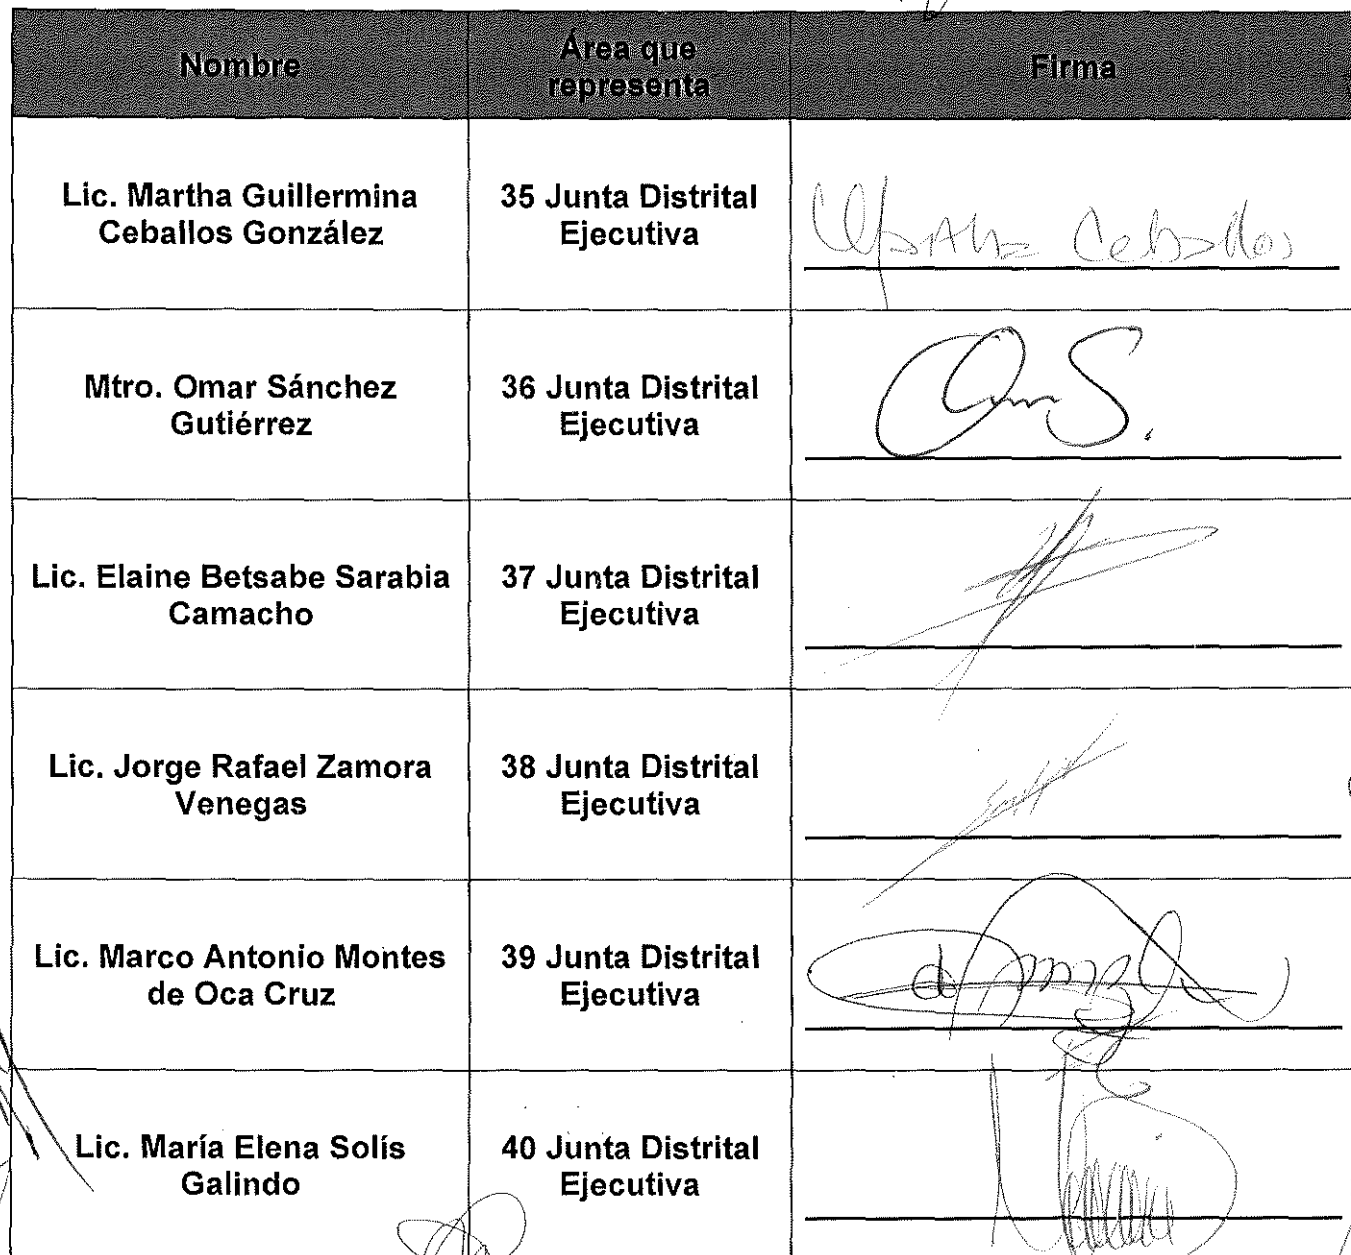 Nombre
Área que
representa
Firma
Lic. Martha Guillermina
Ceballos González
35 Junta Distrital
Ejecutiva
Martha Ceballos
Mtro. Omar Sánchez
Gutiérrez
36 Junta Distrital
Ejecutiva
Lic. Elaine Betsabe Sarabia
Camacho
37 Junta Distrital
Ejecutiva
Lic. Jorge Rafael Zamora
Venegas
38 Junta Distrital
Ejecutiva
Lic. Marco Antonio Montes
de Oca Cruz
39 Junta Distrital
Ejecutiva
Lic. María Elena Solís
Galindo
40 Junta Distrital
Ejecutiva